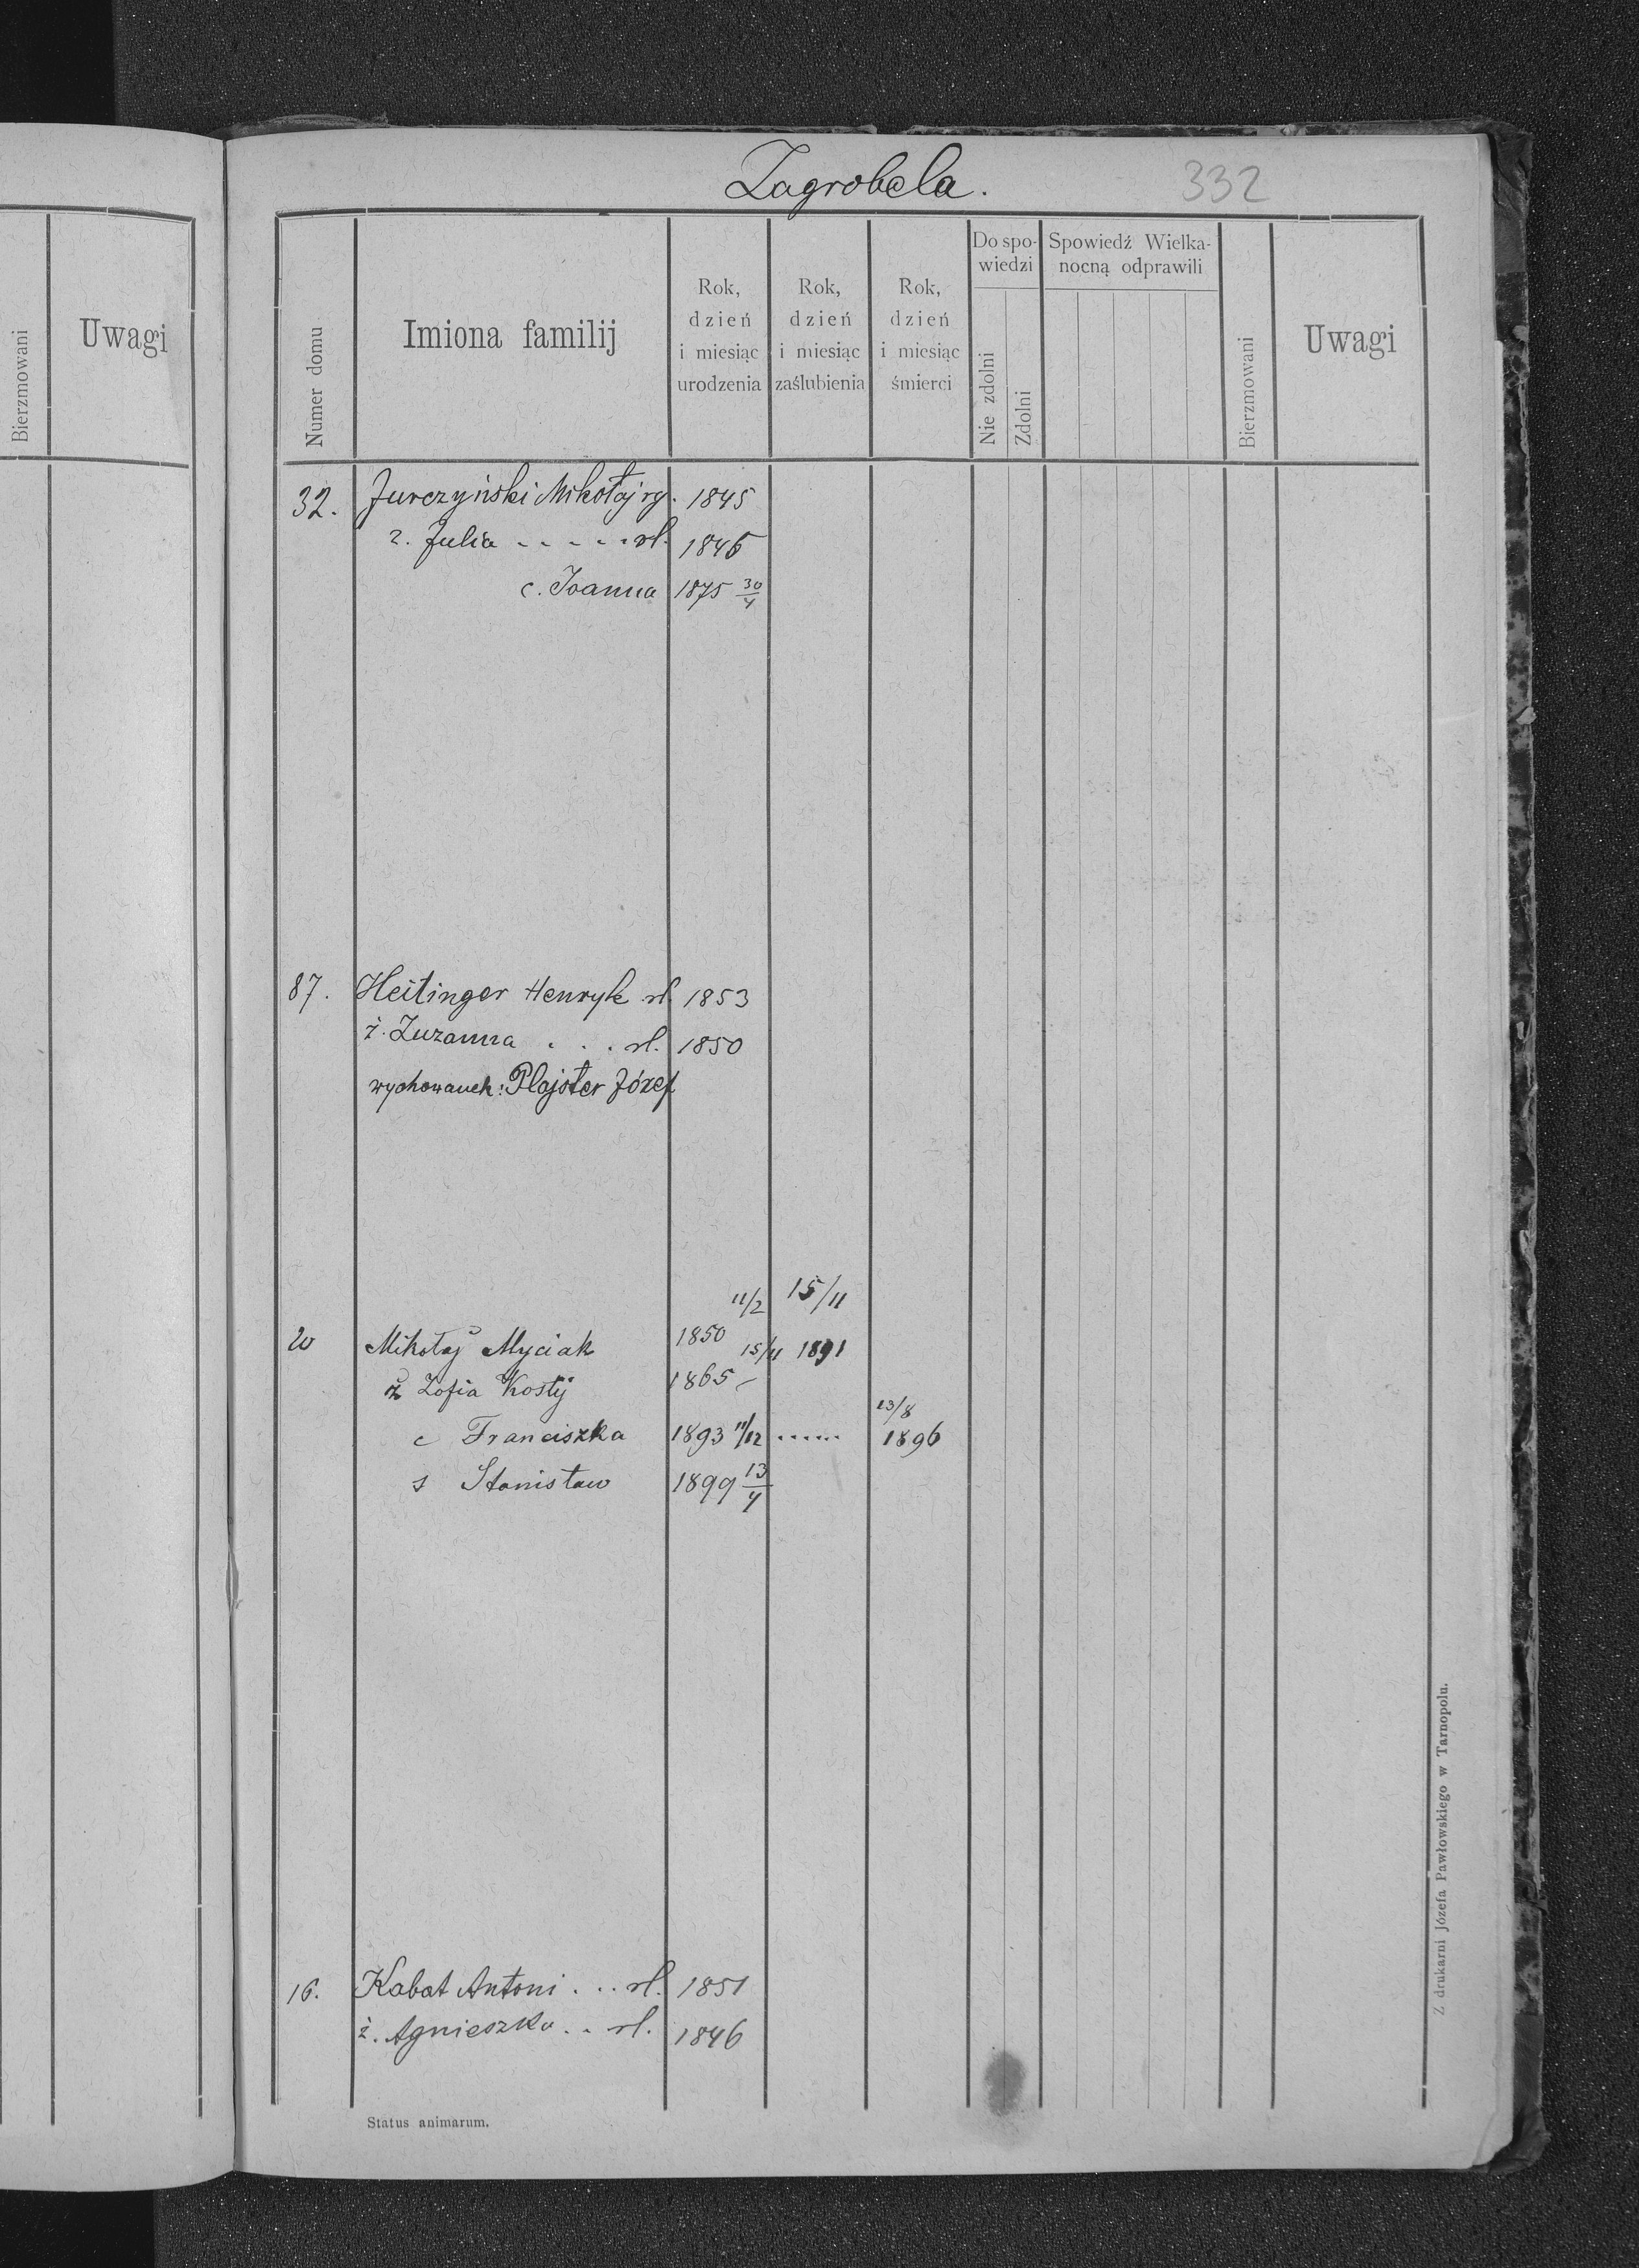 Zagrobela.
332
Bierzmowani
Uwagi
Numer domu
Imiona familij
Rok, dzień i miesiąc urodzenia
Rok, dzień i miesiąc zaślubienia
Rok, dzień i miesiąc śmierci
Do spo-
wiedzi
Nie zdolni
Zdolni
Spowiedź Wielka-
nocną odprawili
Bierzmowani
Uwagi
32. Jurczyński Mikołaj rg. 1845
ż. Julia - - - - - rł. 1846
c. Joanna 1875 30/4
87. Heitinger Henryk rł. 1853
ż. Zuzanna . . . rł. 1850
wychowanek: Plajster Józef
11/2 15/11
20 Mikołaj Myciak 1850 1891
15/11
ż Zofia Kostij 1865 -
13/8
c Franciszka 1893 11/12 ...... 1896
s Stanisław 1899 13/4
16. Kabat Antoni . . . rł. 1851
ż. Agnieszka . . rł. 1846
Status animarum.
Z drukarni Józefa Pawłowskiego w Tarnopolu.